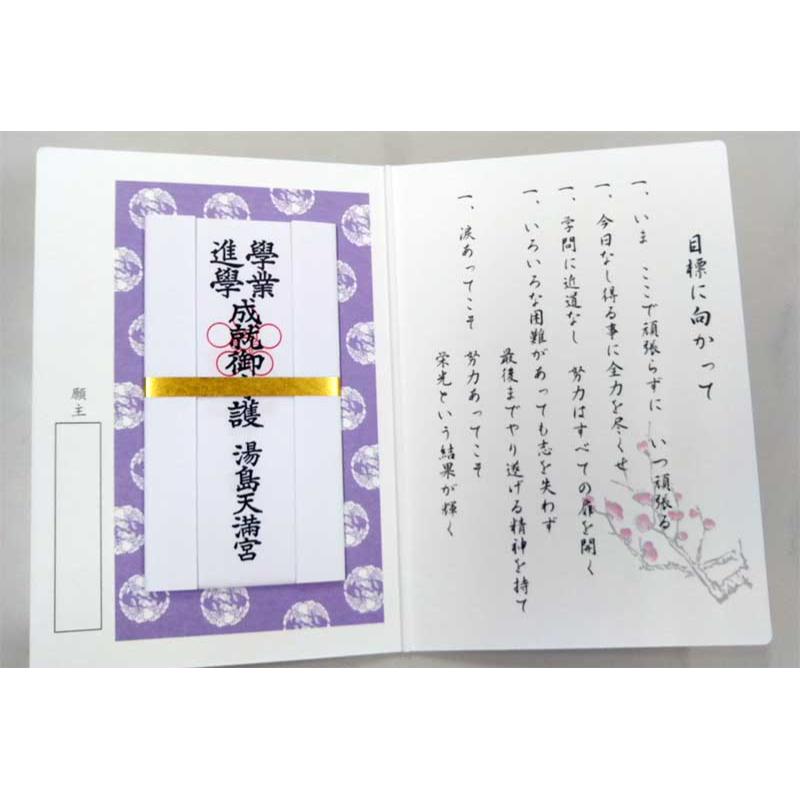 目標に向かって
一、いま ここで頑張らずに いつ頑張る
一、今日なし得る事に全力を尽くせ
一、学問に近道なし 努力はすべての扉を開く
一、いろいろな困難があっても志を失わず
最後までやり遂げる精神を持て
一、涙あってこそ 努力あってこそ
栄光という結果が輝く
學業
進學
成就御
護
湯島天満宮
願主